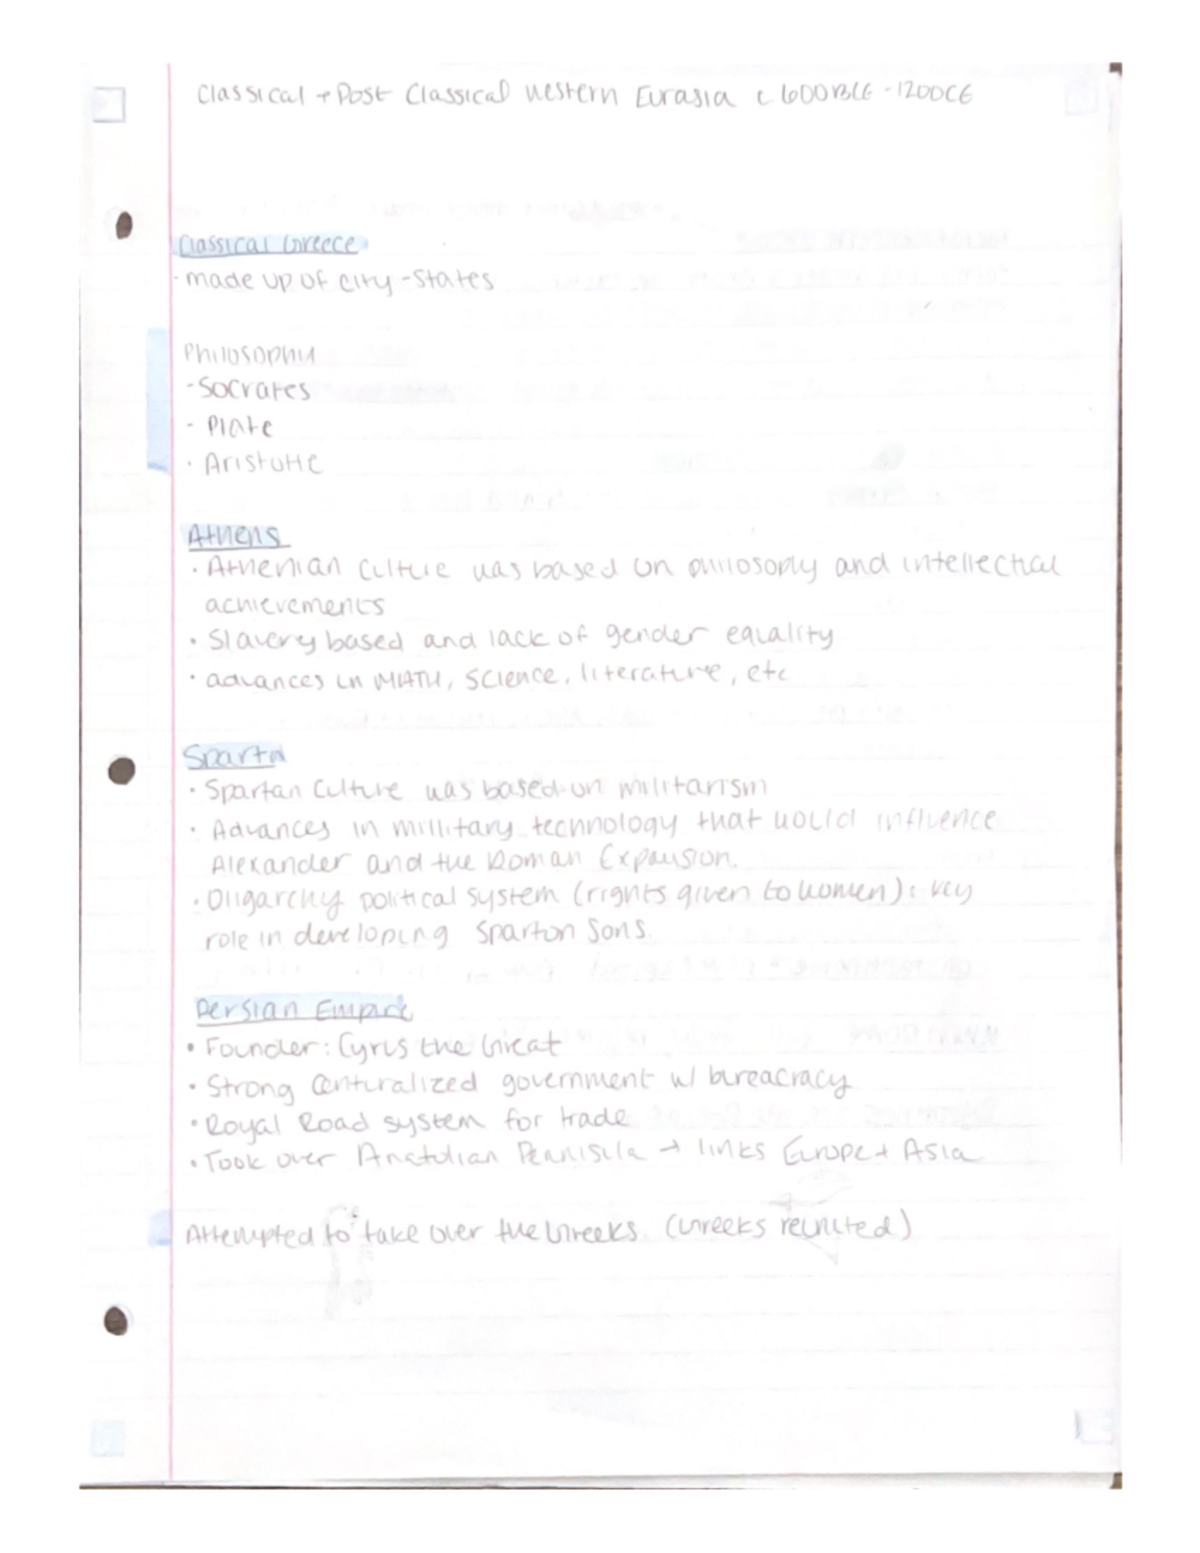 Classical + Post Classical Western Eurasia c 600BCE - 1200CE
Classical Greece
- made up of city-states
Philosophy
- Socrates
- Plato
- Aristotle
Athens
• Athenian culture was based on philosophy and intellectual
achievements
• Slavery based and lack of gender equality
• advances in MATH, Science, literature, etc
Sparta
• Spartan culture was based on militarism
• Advances in millitary technology that would influence
Alexander and the Roman Expansion.
• Oligarchy political system (rights given to women): key
role in developing Sparton Sons.
Persian Empire
• Founder: Cyrus the Great
• Strong centuralized government w/ bureacracy
• Royal Road system for trade
• Took over Anatolian Pennisula → links Europe + Asia
Attempted to take over the Greeks. (Greeks reunited)